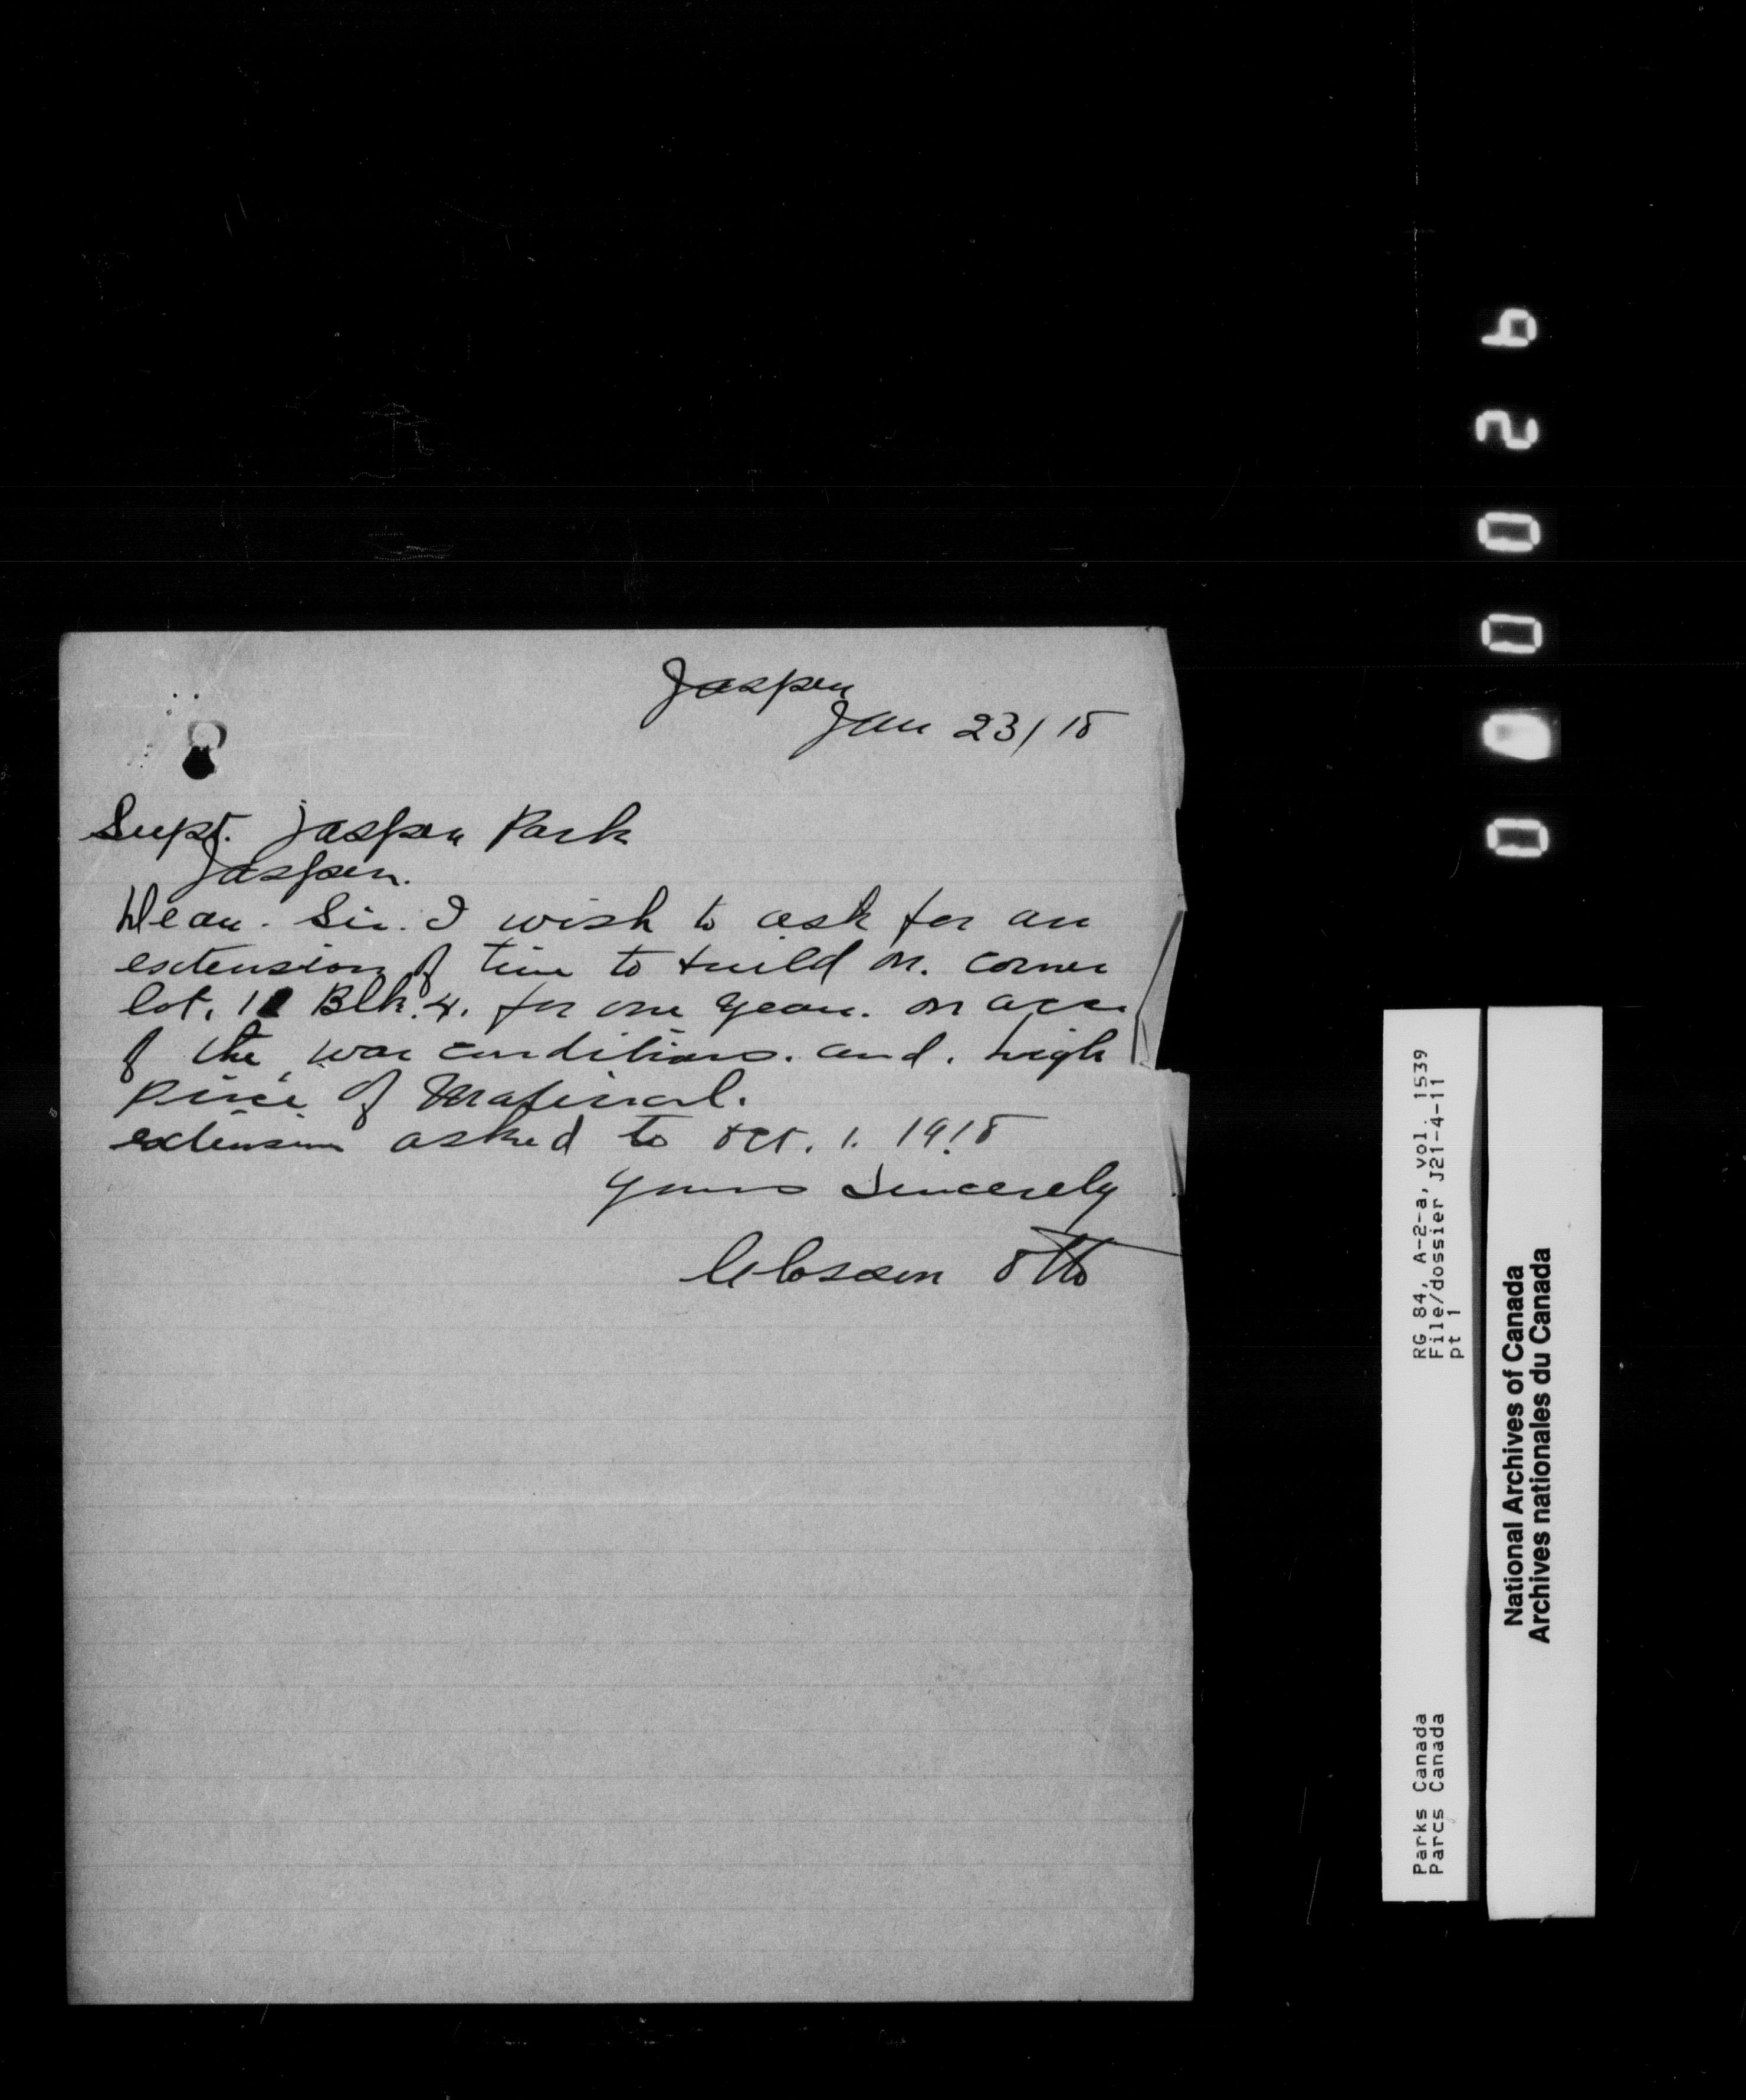 Jasper
Jan 23/18
Supt. Jasper Park
Jasper.
Dear. Sir. I wish to ask for an
extension of time to build on. corner
lot. 11 Blk. 4. for one year. on acc.
of the war conditions. and. high
price of Material.
extension asked to Oct. 1. 1918
Yours Sincerely
Closson Otto
000026
RG 84, A-2-a, vol. 1539
File/dossier J21-4-11
pt 1
Parks Canada
Parcs Canada
National Archives of Canada
Archives nationales du Canada